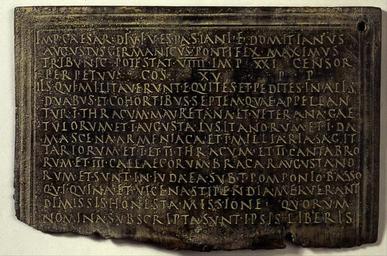 IMP CAESAR DIVI VESPASIANI F DOMITIANVS
AVGVSTVS GERMANICVS PONTIFEX MAXIMVS
TRIBVNIC POTESTAT VIIII IMP XXI CENSOR
PERPETVVS COS XV P P
IIS QVI MILITAVERVNT EQVITES ET PEDITES IN ALIS
DVABVS ET COHORTIBVS SEPTEM QVAE APPELLAN
TVR I THRACVM MAVRETANA ET VETERANA GAE
TVLORVM ET I AVGVSTA LVSITANORVM ET I DA
MASCENA ARMENIACA ET I MILLIARIA SAGIT
TARIORVM ET I ET II THRACVM ET II CANTABRO
RVM ET III CALLAECORVM BRACARAVGVSTANO
RVM ET SVNT IN IVDAEA SVB T POMPONIO BASSO
QVI QVINA ET VICENA STIPENDIA MERVERVNT
DIMISSIS HONESTA MISSIONE QVORVM
NOMINA SVBSCRIPTA SVNT IPSIS LIBERIS